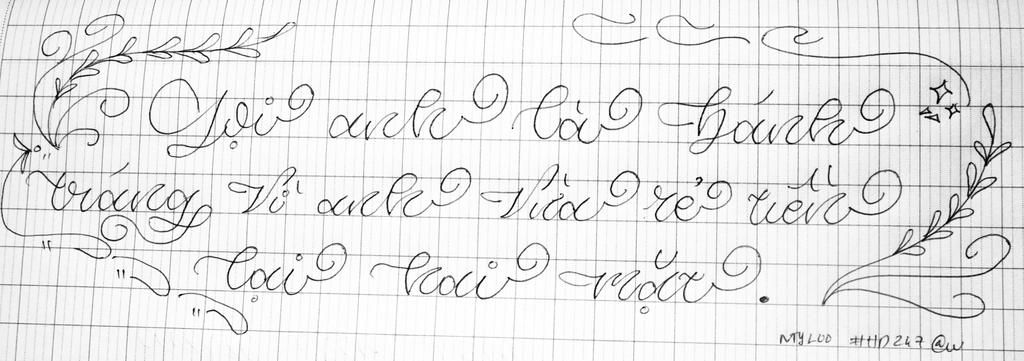 Gọi anh là bánh
tráng vì anh vừa rẻ tiền
lại hai mặt.
MTYLOO #HD247 @w